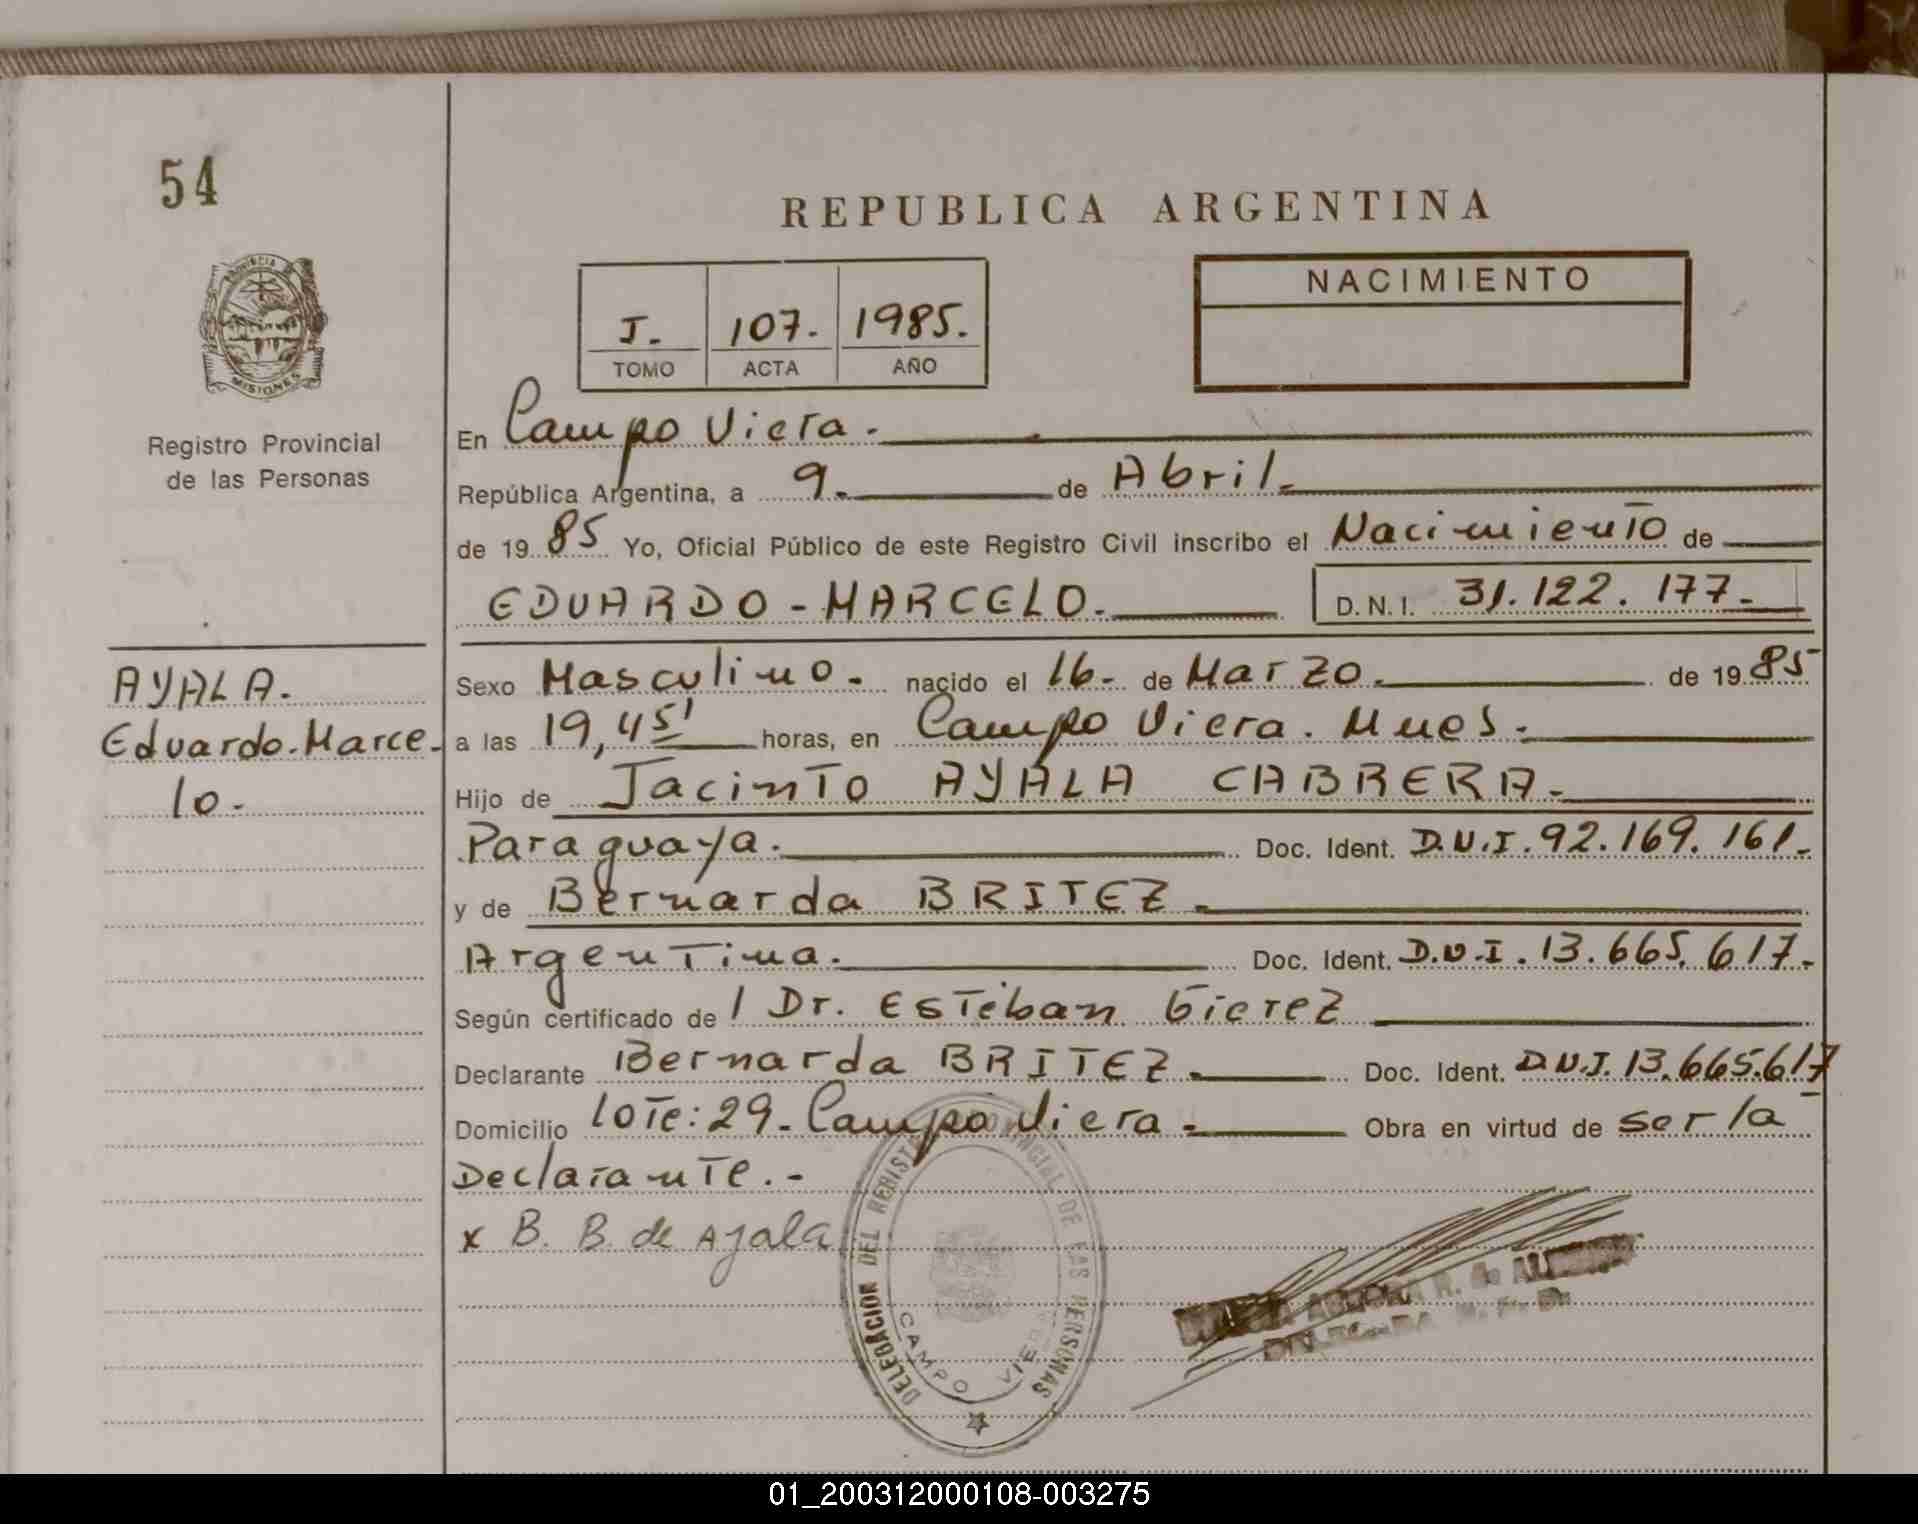 54
REPUBLICA ARGENTINA
PROVINCIA DE
MISIONES
Registro Provincial
de las Personas
NACIMIENTO
I. 107. 1985.
TOMO ACTA AÑO
En Campo Viera.
República Argentina, a 9. de Abril.
de 1985 Yo, Oficial Público de este Registro Civil inscribo el Nacimiento de
EDUARDO-MARCELO. D.N.I. 31.122.177.-
AYALA.
Eduardo.Marce-
lo.
Sexo Masculino. nacido el 16. de Marzo. de 1985
a las 19,45' horas, en Campo Viera. Mnes.
Hijo de Jacinto AYALA CABRERA.
Paraguaya. Doc. Ident. D.N.I. 92.169.161.-
y de Bernarda BRITEZ.
Argentina. Doc. Ident. D.N.I. 13.665.617.-
Según certificado de l Dr. Esteban
Declarante Bernarda BRITEZ. Doc. Ident. D.N.I. 13.665.617
Domicilio lote: 29. Campo Viera. Obra en virtud de ser la
Declarante.-
x B. B. de Ayala
DELEGACION DEL REGISTRO PROVINCIAL DE LAS PERSONAS
CAMPO VIERA
01_200312000108-003275